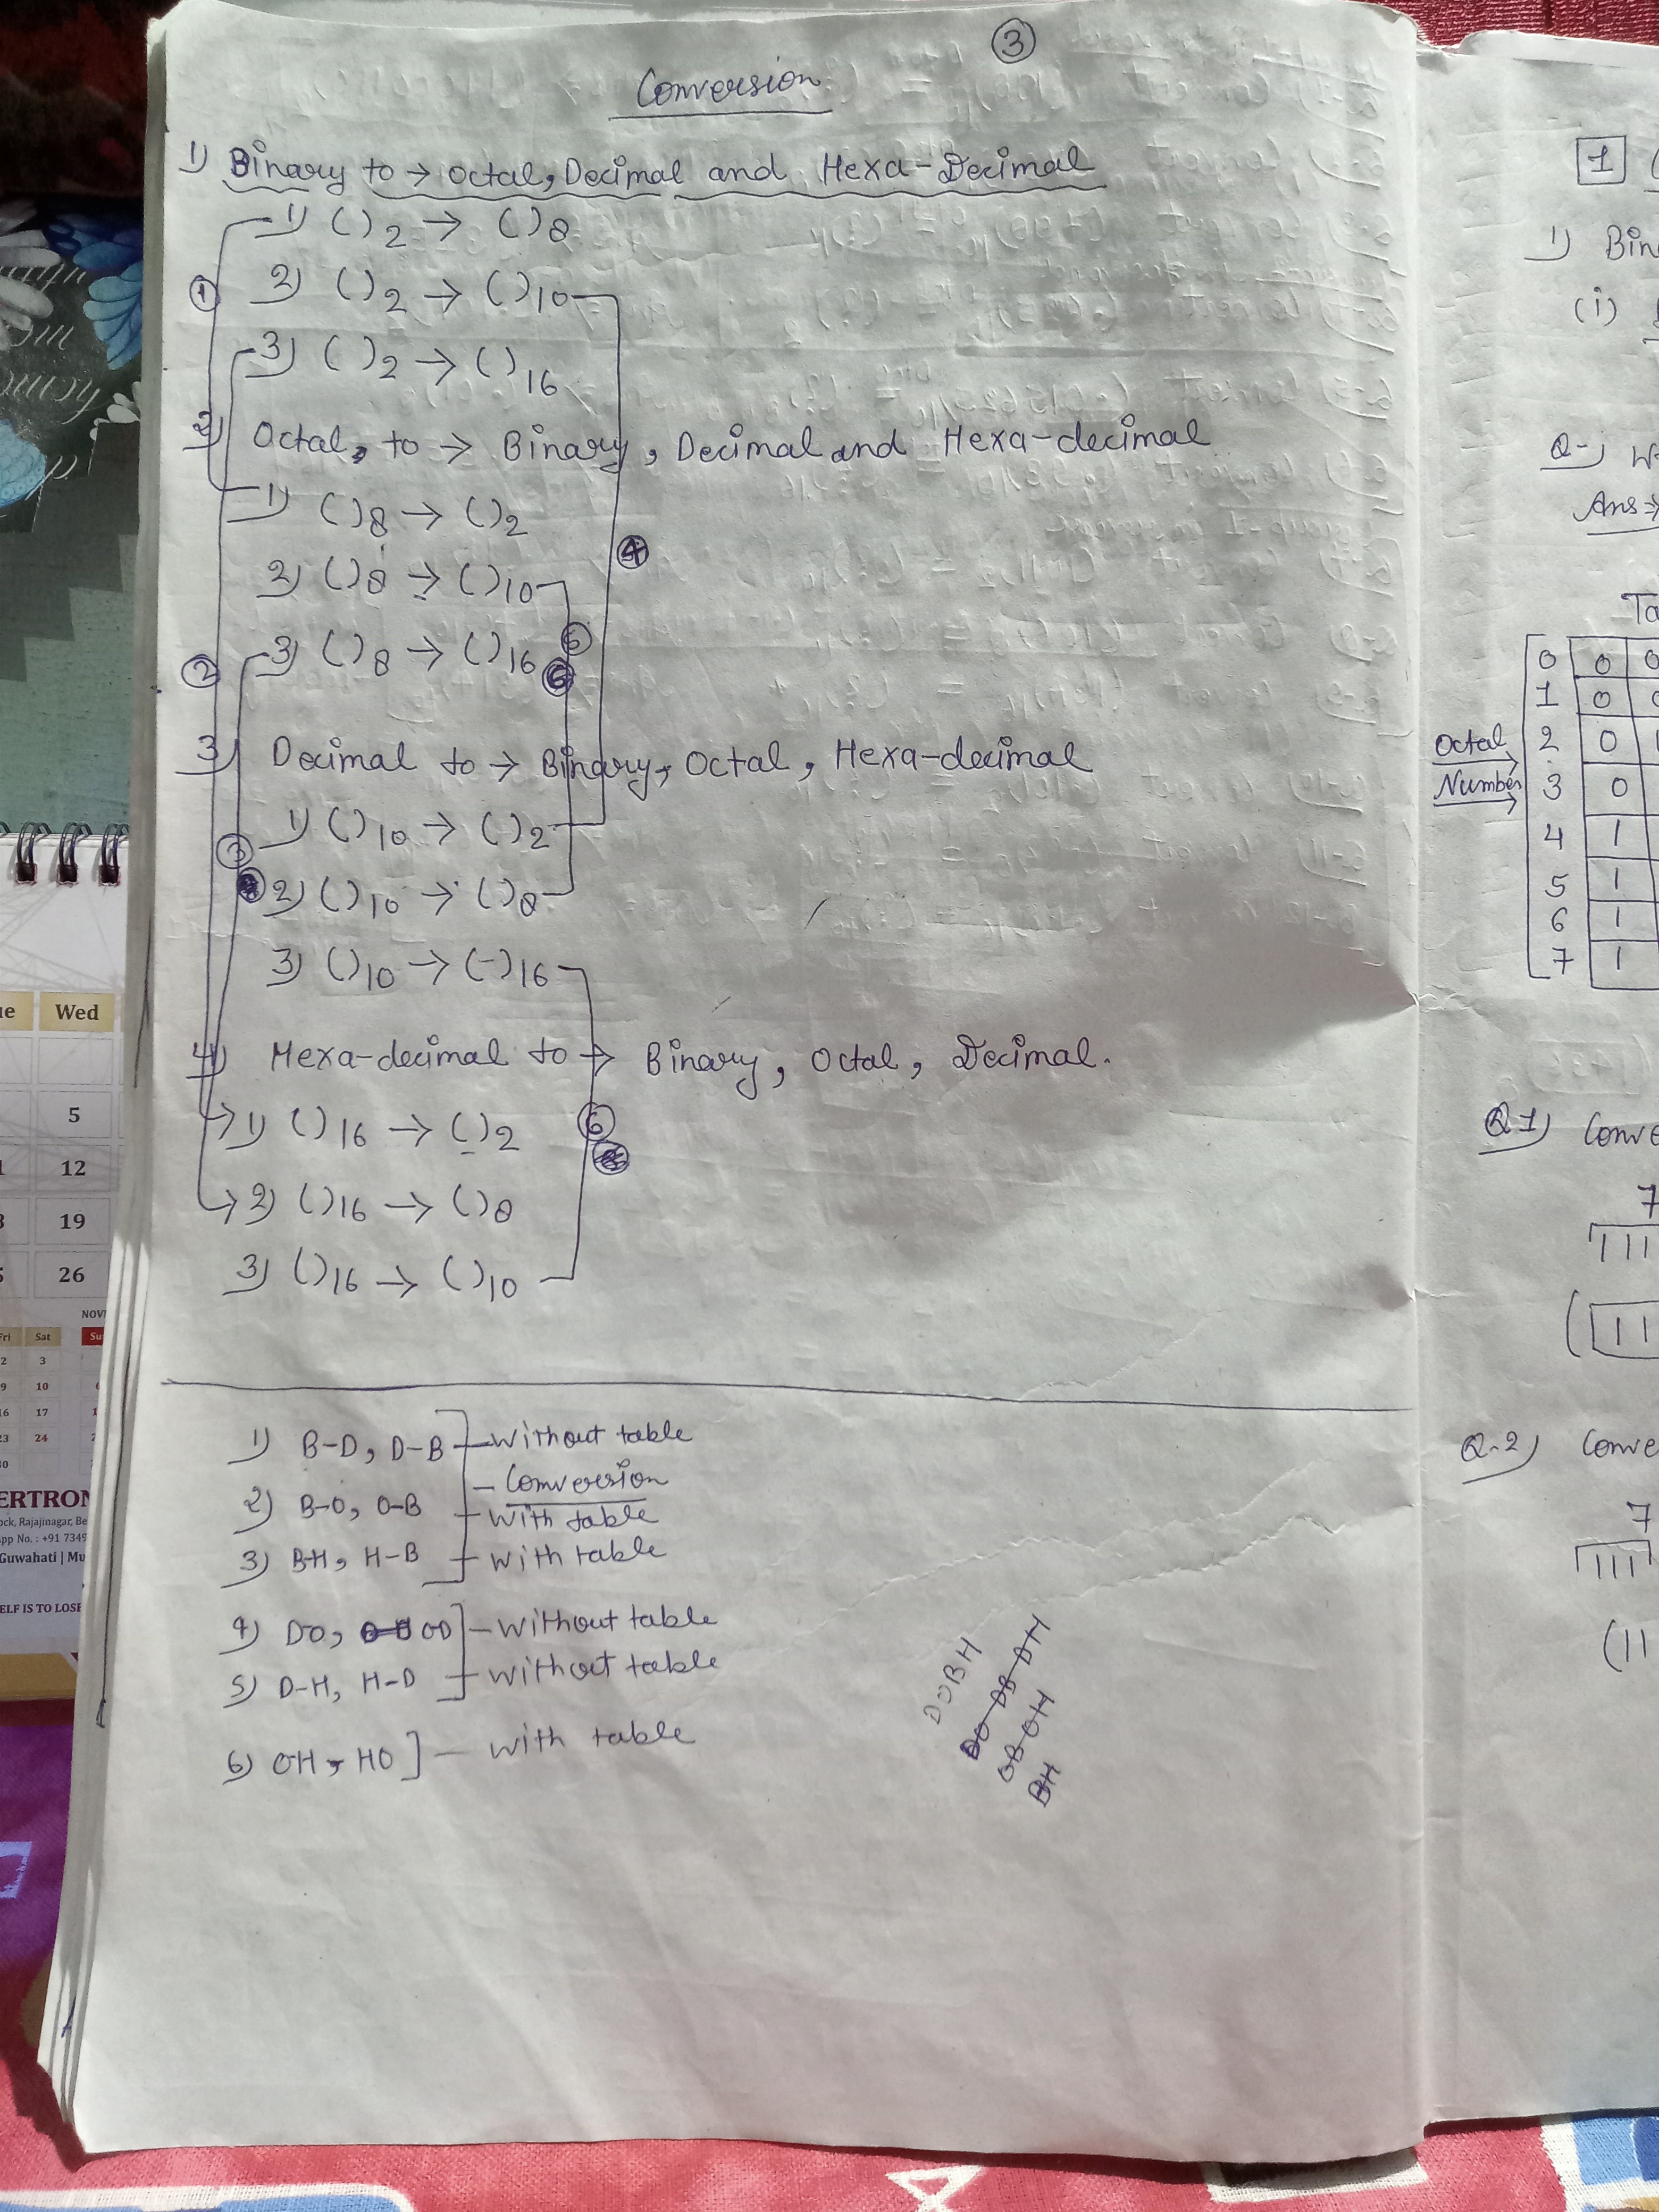 3
Conversion
1) Binary to → Octal, Decimal and Hexa-Decimal
1) ( )2 → ( )8
1
2) ( )2 → ( )10
3) ( )2 → ( )16
2) Octal, to → Binary, Decimal and Hexa-decimal
1) ( )8 → ( )2
4
2) ( )8 → ( )10
5
3) ( )8 → ( )16
2
3) Decimal to → Binary, Octal, Hexa-decimal
1) ( )10 → ( )2
3
2) ( )10 → ( )8
3) ( )10 → (-)16
4) Hexa-decimal to → Binary, Octal, Decimal.
6
1) ( )16 → ( )2
2) ( )16 → ( )8
3) ( )16 → ( )10
1) B-D, D-B - Without table
- Conversion
2) B-O, O-B - With table
3) B-H, H-B - With table
4) DO, OD - Without table
5) D-H, H-D - Without table
6) OH, HO ] - With table
DOBH
DO DB DH
OB OH
BH
1
1) Bin
(i)
Q-)
Ans →
Ta
0 0 0
1 0 0
Octal 2 0 1
Number 3 0
4 1
5 1
6 1
7 1
Q.1) Conve
7
111
11
Q.2) Conve
7
111
(11
Wed
5
12
19
26
NOV
Fri Sat Su
2 3
9 10
16 17
23 24
30
ERTRON
ock, Rajajinagar, Be
pp No. : +91 7349
Guwahati | Mu
ELF IS TO LOSE